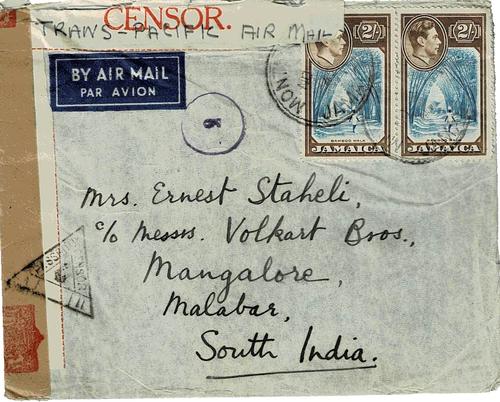 CENSOR.
TRANS-PACIFIC AIR MAIL
BY AIR MAIL
PAR AVION
2/-
2/-
BAMBOO WALK
JAMAICA
JAMAICA
Mrs. Ernest Staheli,
c/o Messrs. Volkart Bros.,
Mangalore,
Malabar,
South India.